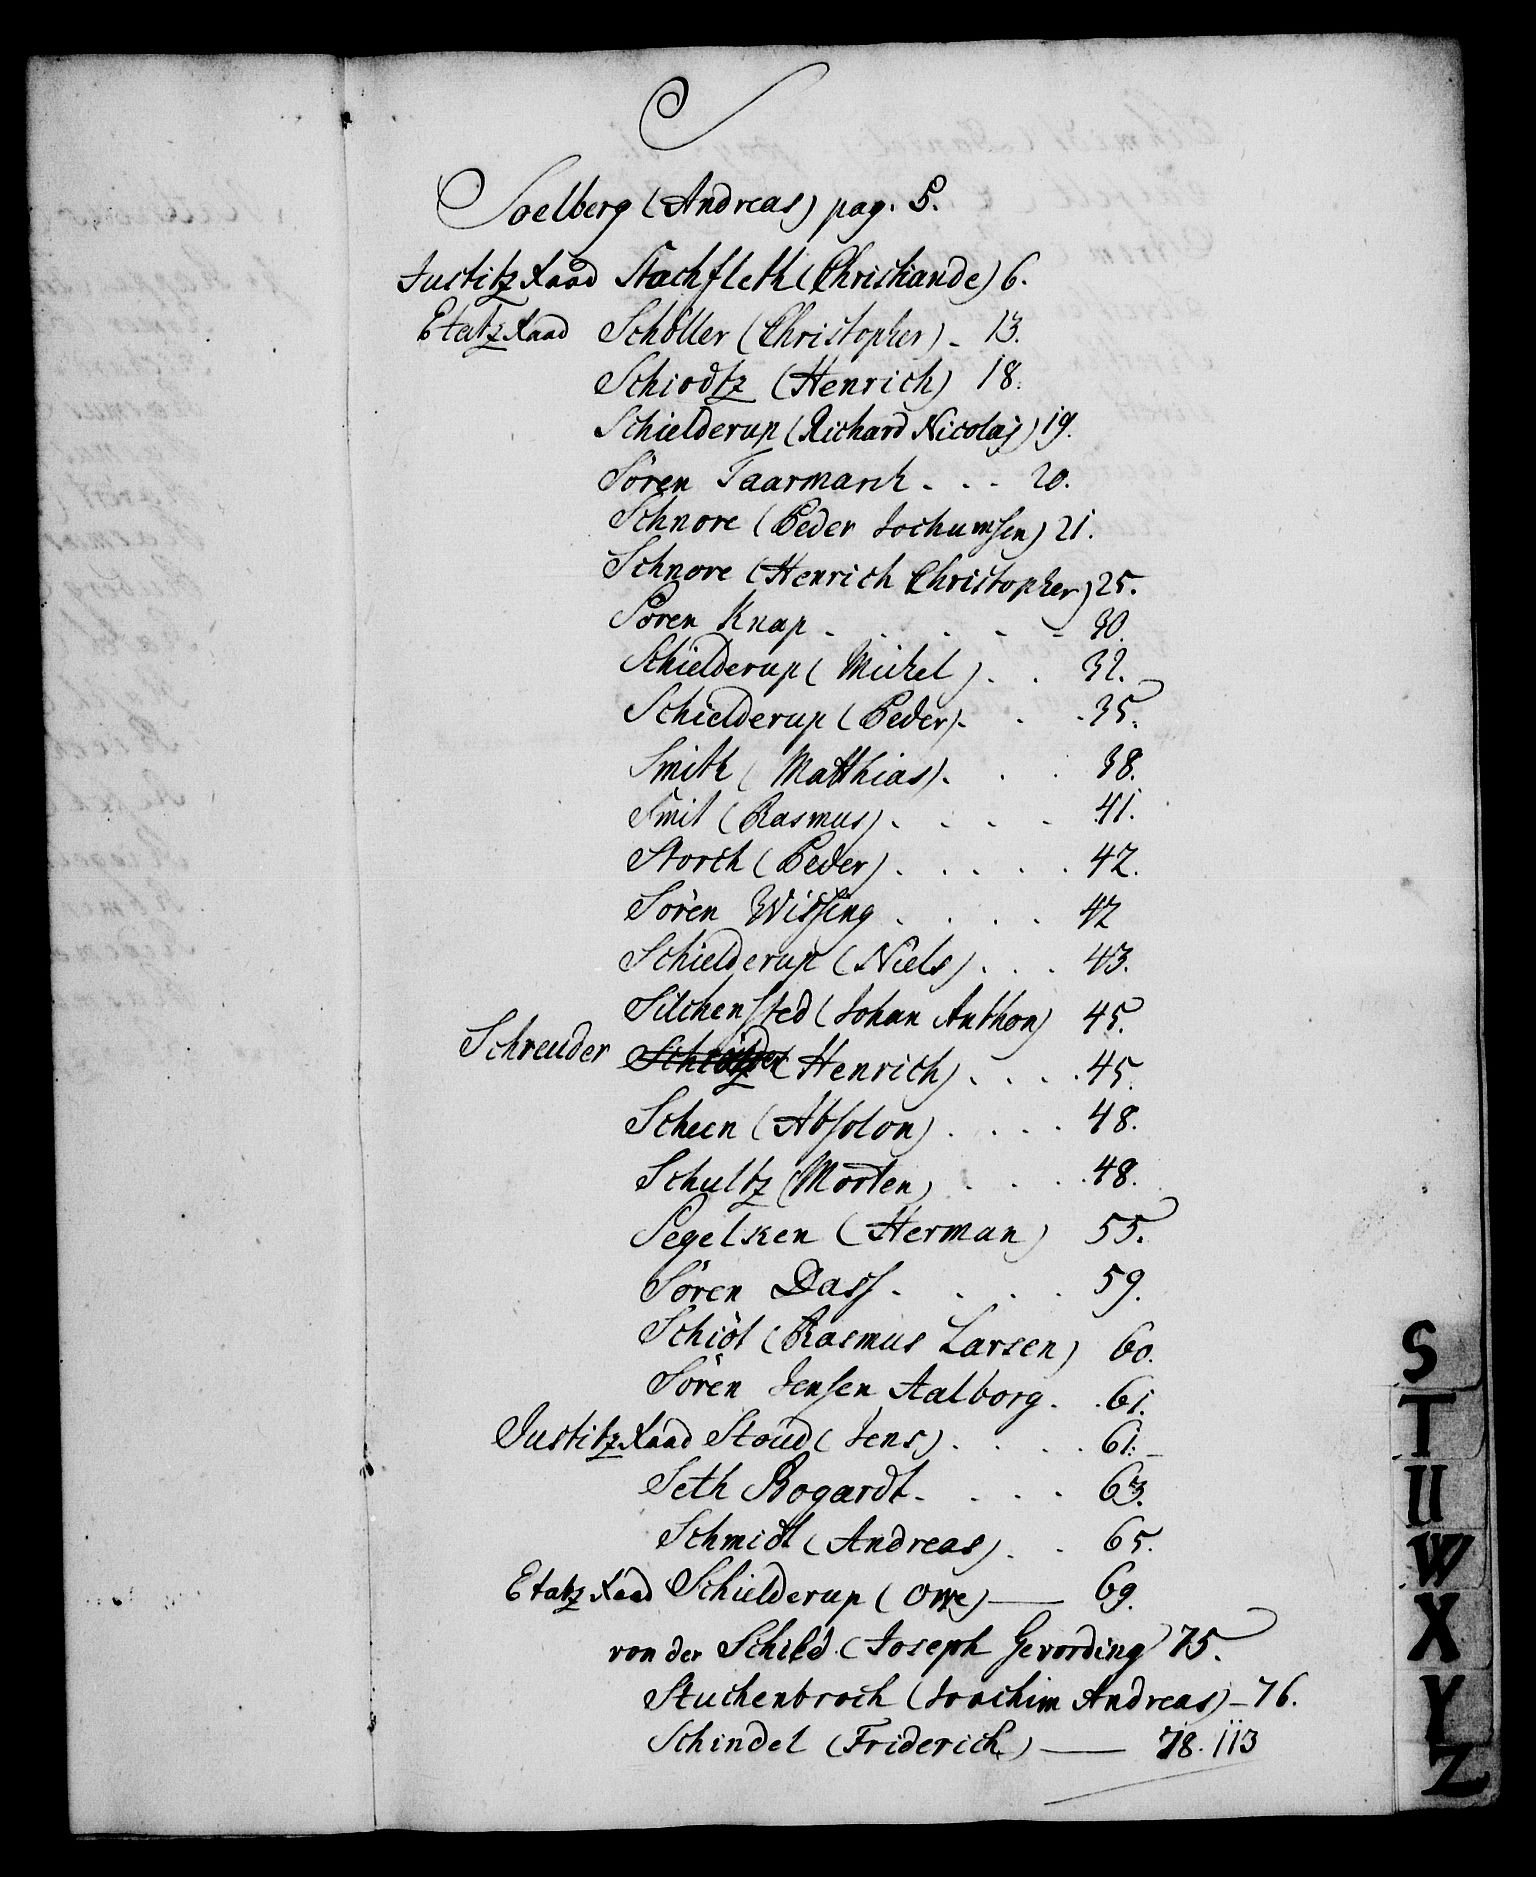 S
Soelberg (Andreas) pag. 5.
Justitz Raad Stachfleth (Christiande) 6.
Etatz Raad Schöller (Christopher) - 13.
Schiodtz (Henrich) 18.
Schielderup (Richard Nicolaj) 19.
Sören Taarmarck - - - 20.
Schnore (Peder Jochumsen) 21.
Schnore (Henrich Christopher) 25.
Sören Knap - - - - - 30.
Schielderup (Michel) . . 32.
Schielderup (Peder). . . 35.
Smith (Matthias). . . 38.
Smit (Rasmus) . . . . 41.
Storch (Peder) . . . . . 42.
Sören Wissing . . . . 42
Schielderup (Niels) . . . 43.
Silchensted (Johan Anthon) 45.
Schreuder (Henrich) . . . . 45.
Scheen (Absolon) . . . . 48.
Schultz (Morten) . . . . 48.
Segelken (Herman) 55.
Sören Dass . . . . 59.
Schiöt (Rasmus Larsen) 60.
Sören Jensen Aalborg . . 61.
Justitz Raad Stoud (Jens) . . . . 61. -
Seth Bogardt - . . . 63.
Schmidt (Andreas) . . 65.
Etatz Raad Schielderup (Owe) — 69.
von der Schild (Joseph Gevording) 75.
Stuchenbroch (Joachim Andreas) - 76.
Schindel (Friderich) — 78. 113
S
T
U
W
X
Y
Z